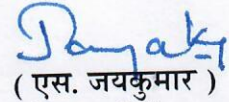 ( एस. जयकुमार )